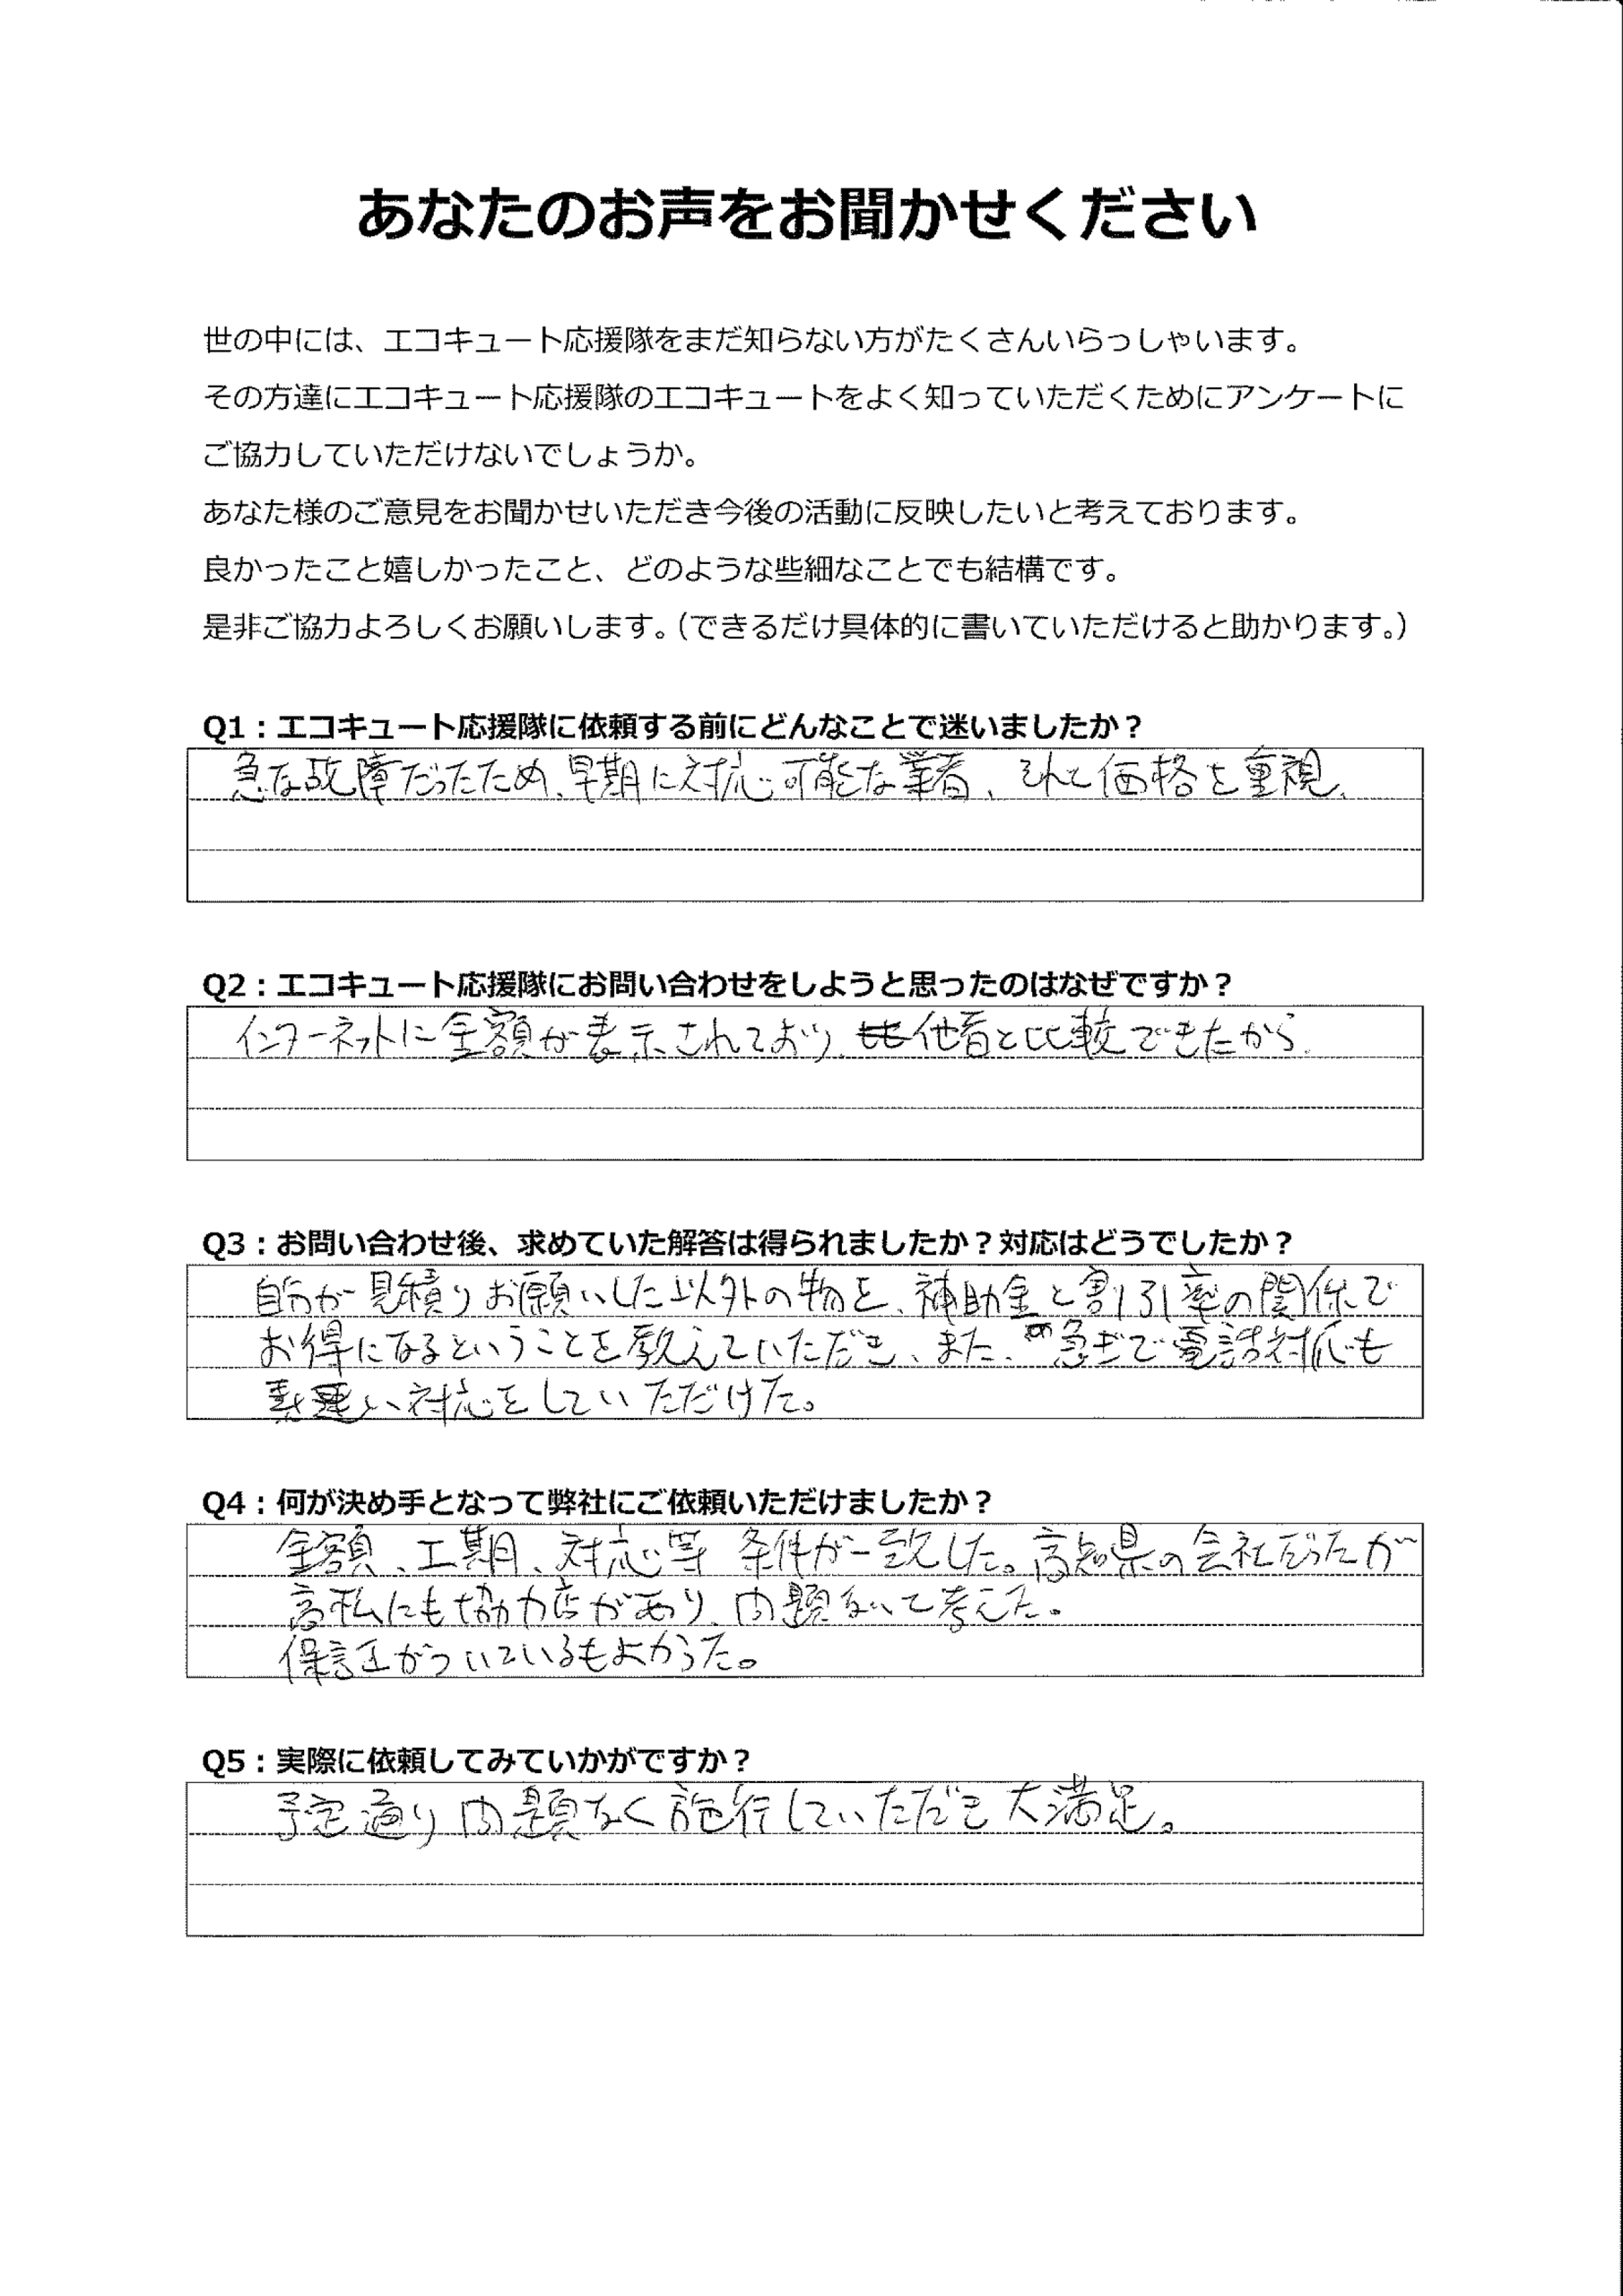 あなたのお声をお聞かせください
世の中には、エコキュート応援隊をまだ知らない方がたくさんいらっしゃいます。
その方達にエコキュート応援隊のエコキュートをよく知っていただくためにアンケートに
ご協力していただけないでしょうか。
あなた様のご意見をお聞かせいただき今後の活動に反映したいと考えております。
良かったこと嬉しかったこと、どのような些細なことでも結構です。
是非ご協力よろしくお願いします。（できるだけ具体的に書いていただけると助かります。）
Q1：エコキュート応援隊に依頼する前にどんなことで迷いましたか？
急な故障だったため、早期に対応可能な業者、それと価格を重視、
Q2：エコキュート応援隊にお問い合わせをしようと思ったのはなぜですか？
インターネットに金額が表示されており、他者と比較できたから、
Q3：お問い合わせ後、求めていた解答は得られましたか？対応はどうでしたか？
自分が見積りお願いした以外の物を、補助金と割引率の関係で
お得になるということを教えていただき、また、急ぎで電話対応も
素早い対応をしていただけた。
Q4：何が決め手となって弊社にご依頼いただけましたか？
金額、工期、対応等 条件が一致した。高知県の会社だったが
にも協力店があり、問題ないと考えた。
保証がついているもよかった。
Q5：実際に依頼してみていかがですか？
予定通り問題なく施行していただき大満足。